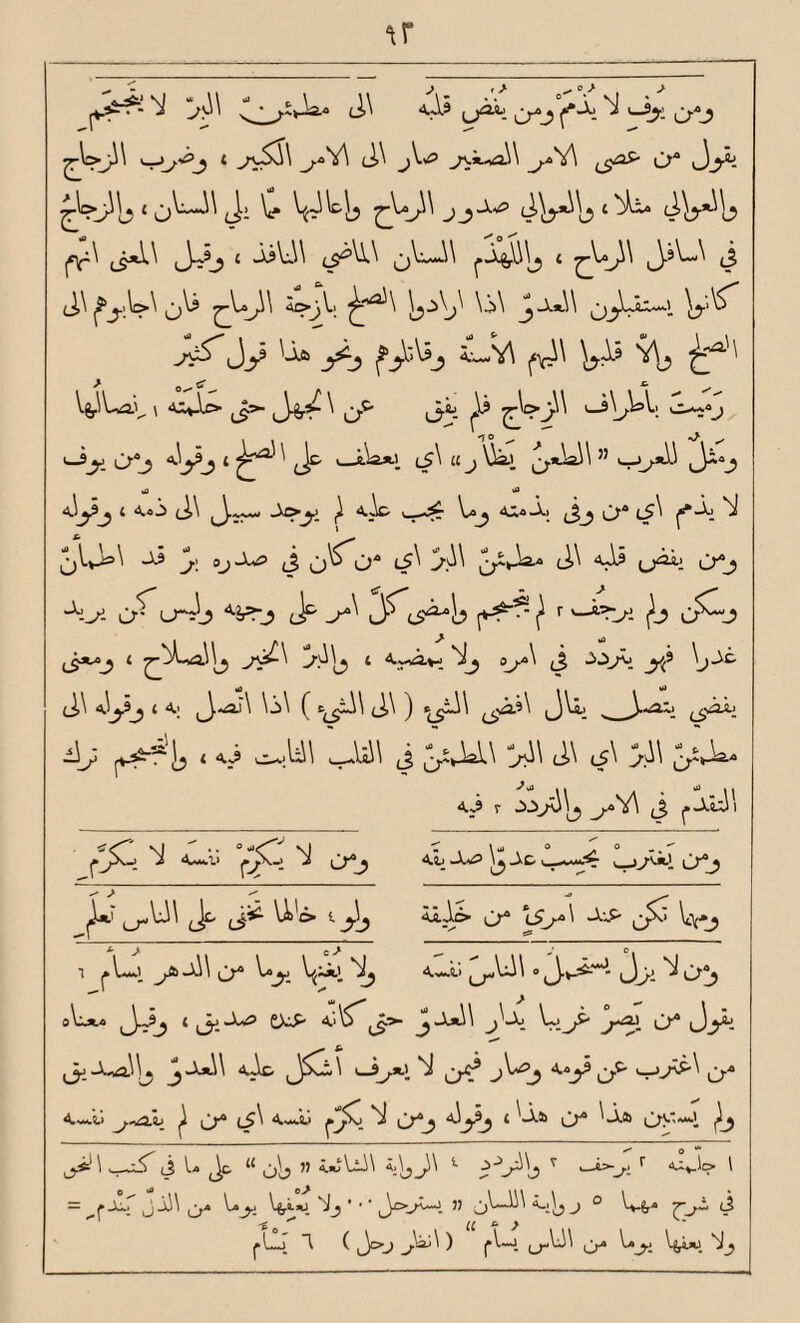 ٩٣
ومن يوف لا يذمم ومن يفض قلبه إلى مطمئن البر لا يتجمجم
يقول من عصى الأمر الصغير صار إلى الأمر الكبير ، وضرب الزجاج
مثلا ، والعوالي صدور الرماح وأعاليها ما يلي السنان ، والزجاج
في أسافل الرماح ، واللهذم السنان الماضي النافذ ، وقيل المعنى أنهم
كانوا يستقبلون العدو إذا أرادوا الصلح بازجة الرماح فان أجابوهم إلى
الصلح وإلا قلبوا إليهم الأسنة وقاتلوهم وهو كهذا قول كثير
رميت بأطراف الزجاج فلم يفق عن الجهل حتى حلمته ١ نصالها
ومثل للعرب " الطعن يظأر " أي يعطف على الصلح ، وقوله ومن يوف
لا يذم أي من وفى بذمته وما يجب عليه لم يوجد سبيل إلى ذمه ، وقوله
ومن يفض قلبه إلى مطمئن البر أي من كان في صدره بر قد اطمأن
وسكن ولم يرجف ٢ لم يتجمجم وأمضى كل أمر على وجهه وليس كمن يريد
غدرا فهو يتردد في أمره ولا يمضيه ، والبر الخير والصلاح ، ومعنى
يفضي يتصل يقال أفضى الشيء ( إلى الشيء ) إذا اتصل به ، وقوله إلى
مطمئن البر أي إلى البر المطمئن في القلب الثابت فيه ، والتجمجم ترك
التقدم في الأمر والتردد ٣ فيه
ومن يغترب يحسب عدوا صديقه ومن لا يكرم نفسه لا يكرم
ومهما تكن عند امرئ من خليقة ولو ٤ خالها تخفى على الناس تعلم
ومن لا يزل يستحمل ٥ الناس نفسه ولا يعنها يوما من الدهر يسأم ٦
يقول من يصر غريبا يدار العدو حتى كأنه عنده صديق ، وقيل معناه
من اغترب عن قومه وصار فيمن لا يعرف أشكل عليه العدو والصديق
ولم يستبن هذا من هذا ، وقوله ومن لا يكرم نفسه أي من لم يصبر نفسه
١ حلمته ٢ يرجف ٣ والترود ٤ الرواية الشائعة " وان " على ما في كتب النحو
في شروح مهما ٥ رواية اللسان " يسترحل ... ولا يعفها يوما من الذل يندم =
ولا يعنها يوما من الناس يسأم " ( انظر رحل ) ٦ تسأم